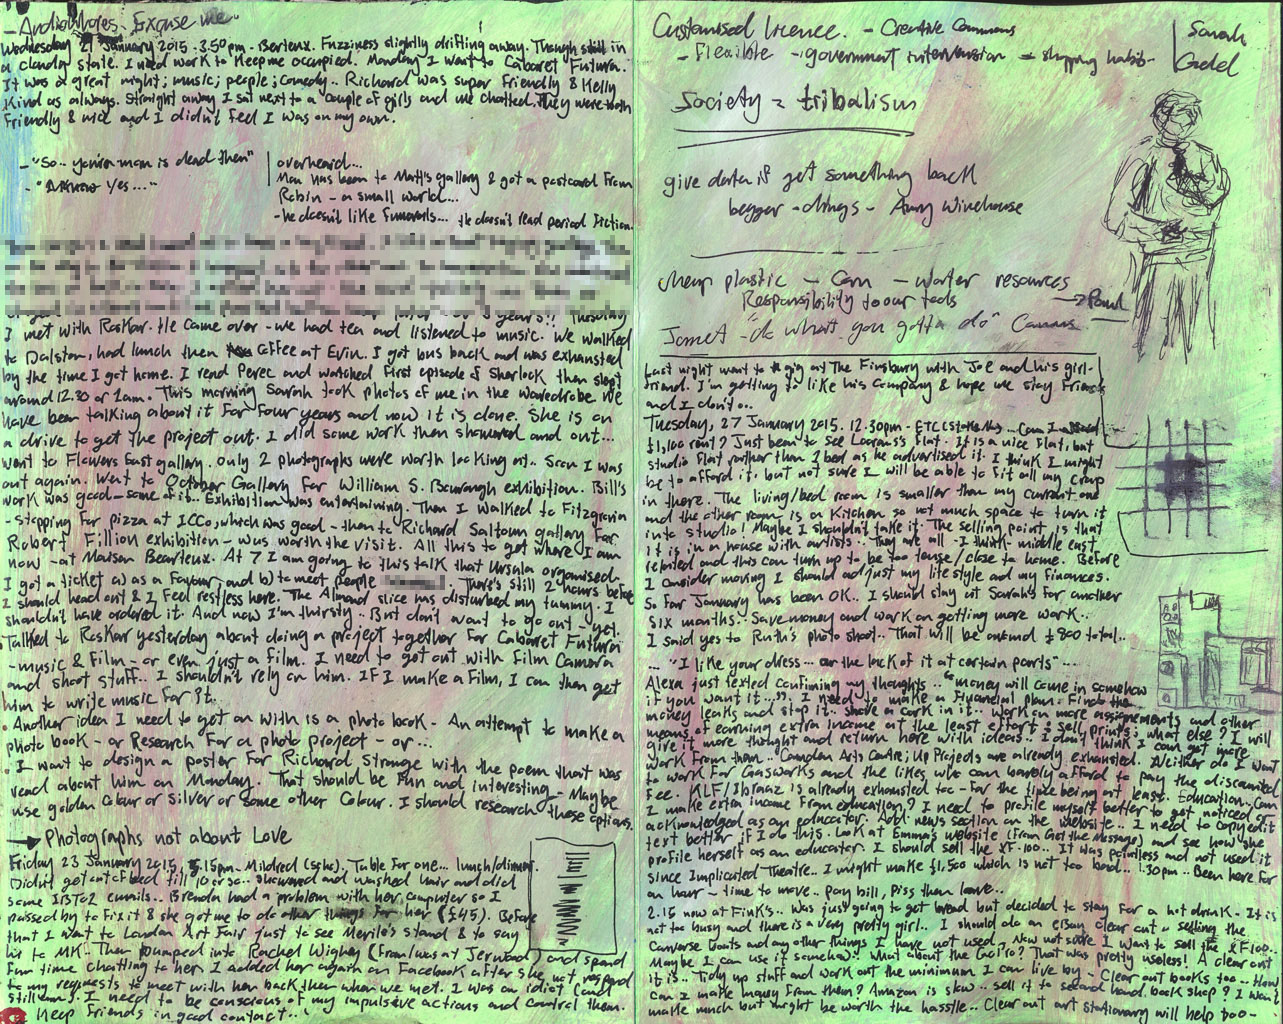 - Audio Whores - Excuse me"
Wednesday 21 January 2015 - 3.50pm - Bearleux. Fuzziness slightly drifting away. Though still in
a cloudy state. I need work to keep me occupied. Monday I went to Cabaret Futura.
It was a great night; music; people; comedy.. Richard was super friendly & Kelly
kind as always. Straight away I sat next to a couple of girls and we chatted. They were both
friendly & nice and I didn't feel I was on my own.
- "So.. your mom is dead then"
- " yes..."
overheard...
Man has been to Matt's gallery & got a postcard from
Robin - a small world...
- he doesn't like funerals... He doesn't read period fiction.
years!! Tuesday
I met with Raskar. He came over - we had tea and listened to music. We walked
to Dalston, had lunch then coffee at Evin. I got bus back and was exhausted
by the time I got home. I read Perec and watched first episode of Sherlock then slept
around 12.30 or 1am. This morning Sarah took photos of me in the waredrobe. We
have been talking about it for four years and now it is done. She is on
a drive to get the project out. I did some work then showered and out...
went to Flowers East gallery. Only 2 photographs were worth looking at.. Soon I was
out again. Went to October Gallery for William S. Bourough exhibition. Bill's
work was good - some of it.. Exhibition was entertaining. Then I walked to Fitzgrovia
- stopping for pizza at ICCo, which was good - then to Richard Saltoun gallery for
Robert Fillion exhibition - was worth the visit. All this to get where I am
now - at Maison Bearteux. At 7 I am going to this talk that Ursula organised
I got a ticket a) as a favour and b) to meet people. There's still 2 hours before
I should head out & I feel restless here. The Almond slice has disturbed my tummy. I
shouldn't have ordered it. And now I'm thirsty.. But don't want to go out - yet.
Talked to Raskar yesterday about doing a project together for Cabaret Futura
- music & film - or even just a film. I need to get out with film camera
and shoot stuff.. I shouldn't rely on him. If I make a film, I can then get
him to write music for it.
· Another idea I need to get on with is a photo book - An attempt to make a
photo book - or Research for a photo project - or...
· I want to design a poster for Richard Strange with the poem that was
read about him on Monday. That should be fun and interesting - Maybe
use golden colour or silver or some other colour. I should research these options.
→ Photographs not about Love
Friday 23 January 2015, 5.15pm - Mildred (Soho), Table for one... lunch/dinner.
Didn't get out of bed till 10 or so.. Showered and washed hair and did
some emails.. Brenda had a problem with her computer so I
passed by to fix it & she got me to do other things for her (£45). Before
that I went to London Art Fair just to see Merilo's stand & to say
hi to MK. Then bumped into Rachel Wigley (from/was at Jerwood) and spend
fun time chatting to her. I added her again on Facebook after she not respond
to my requests to meet with her back then when we met. I was an idiot (and
still am). I need to be conscious of my impulsive actions and control them.
Keep friends in good contact..
Customised licence. - Creative Commons
- flexible - government intervension = shopping habit-
Sarah
Gold
Society = tribalism
give data if get something back
begger - dings - Amy Winehouse
cheap plastic - Can - water resources
Responsibility to our tools → Paul
James - "do what you gotta do" Camus
Last night went to gig at The Finsbury with Joe and his girl-
friend. I'm getting to like his company & hope we stay friends
and I don't..
Tuesday, 27 January 2015. 12.30pm - ETC (Stokey) ... Can I
£1,100 rent? Just been to see flat. It is a nice flat, but
studio flat rather than 1 bed as he advertised it. I think I might
be to afford it. but not sure I will be able to fit all my crap
in there. The living/bed room is smaller than my current one
and the other room is a kitchen so not much space to turn it
into studio! Maybe I shouldn't take it. The selling point, is that
it is in a house with artists.. They are all - I think - middle east
related and this can turn up to be too tense / close to home. Before
I consider moving I should adjust my lifestyle and my finances.
So far January has been OK.. I should stay at Sarah's for another
six months.. Save money and work on getting more work..
I said yes to Ruth's photo shoot.. That will be around £800 total..
... "I like your dress... or the lack of it at certain parts" ...
Alexa just texted confirming my thoughts.. "money will come in somehow
if you want it...". I need to make a financial plan: Find the
money leaks and stop it.. shove a cork in it.. work on more assignements and other
means of earning extra income at the least effort: sell prints; what else? I will
give it more thought and return here with ideas.. I don't think I can get more
work from them.. Camden Arts Centre; Up Projects are already exhausted. Neither do I want
to work for Gasworks and the likes, who can barely afford to pay the discounted
fee. KLF/Ibraaz is already exhausted too - for the time being at least. Education.. Can
I make extra income from education? I need to profile myself better to get noticed or
acknowledged as an educator. Add news section on the website.. I need to copy edit
text better if I do this. Look at Emma's website (from Got the Message) and see how she
profile herself as an educator. I should sell the XF-100.. It was pointless and not used it
since Implicated Theatre.. I might make £1,500 which is not too bad.. 1.30pm.. Been here for
an hour - time to move.. pay bill, Piss then leave..
2.15 now at Fink's.. was just going to get bread but decided to stay for a hot drink - It is
not too busy and there is a very pretty girl.. I should do an eBay clear out - selling the
Converse boots and any other things I have not used.. Now not sure I want to sell the XF100.
Maybe I can use it somehow? What about the ? That was pretty useless! A clear out
it is.. Tidy up stuff and work out the minimum I can live by - Clear out books too.. How
can I make money from them? Amazon is slow.. sell it to second hand book shop? I won't
make much but might be worth the hassle.. Clear out art stationary will help too -